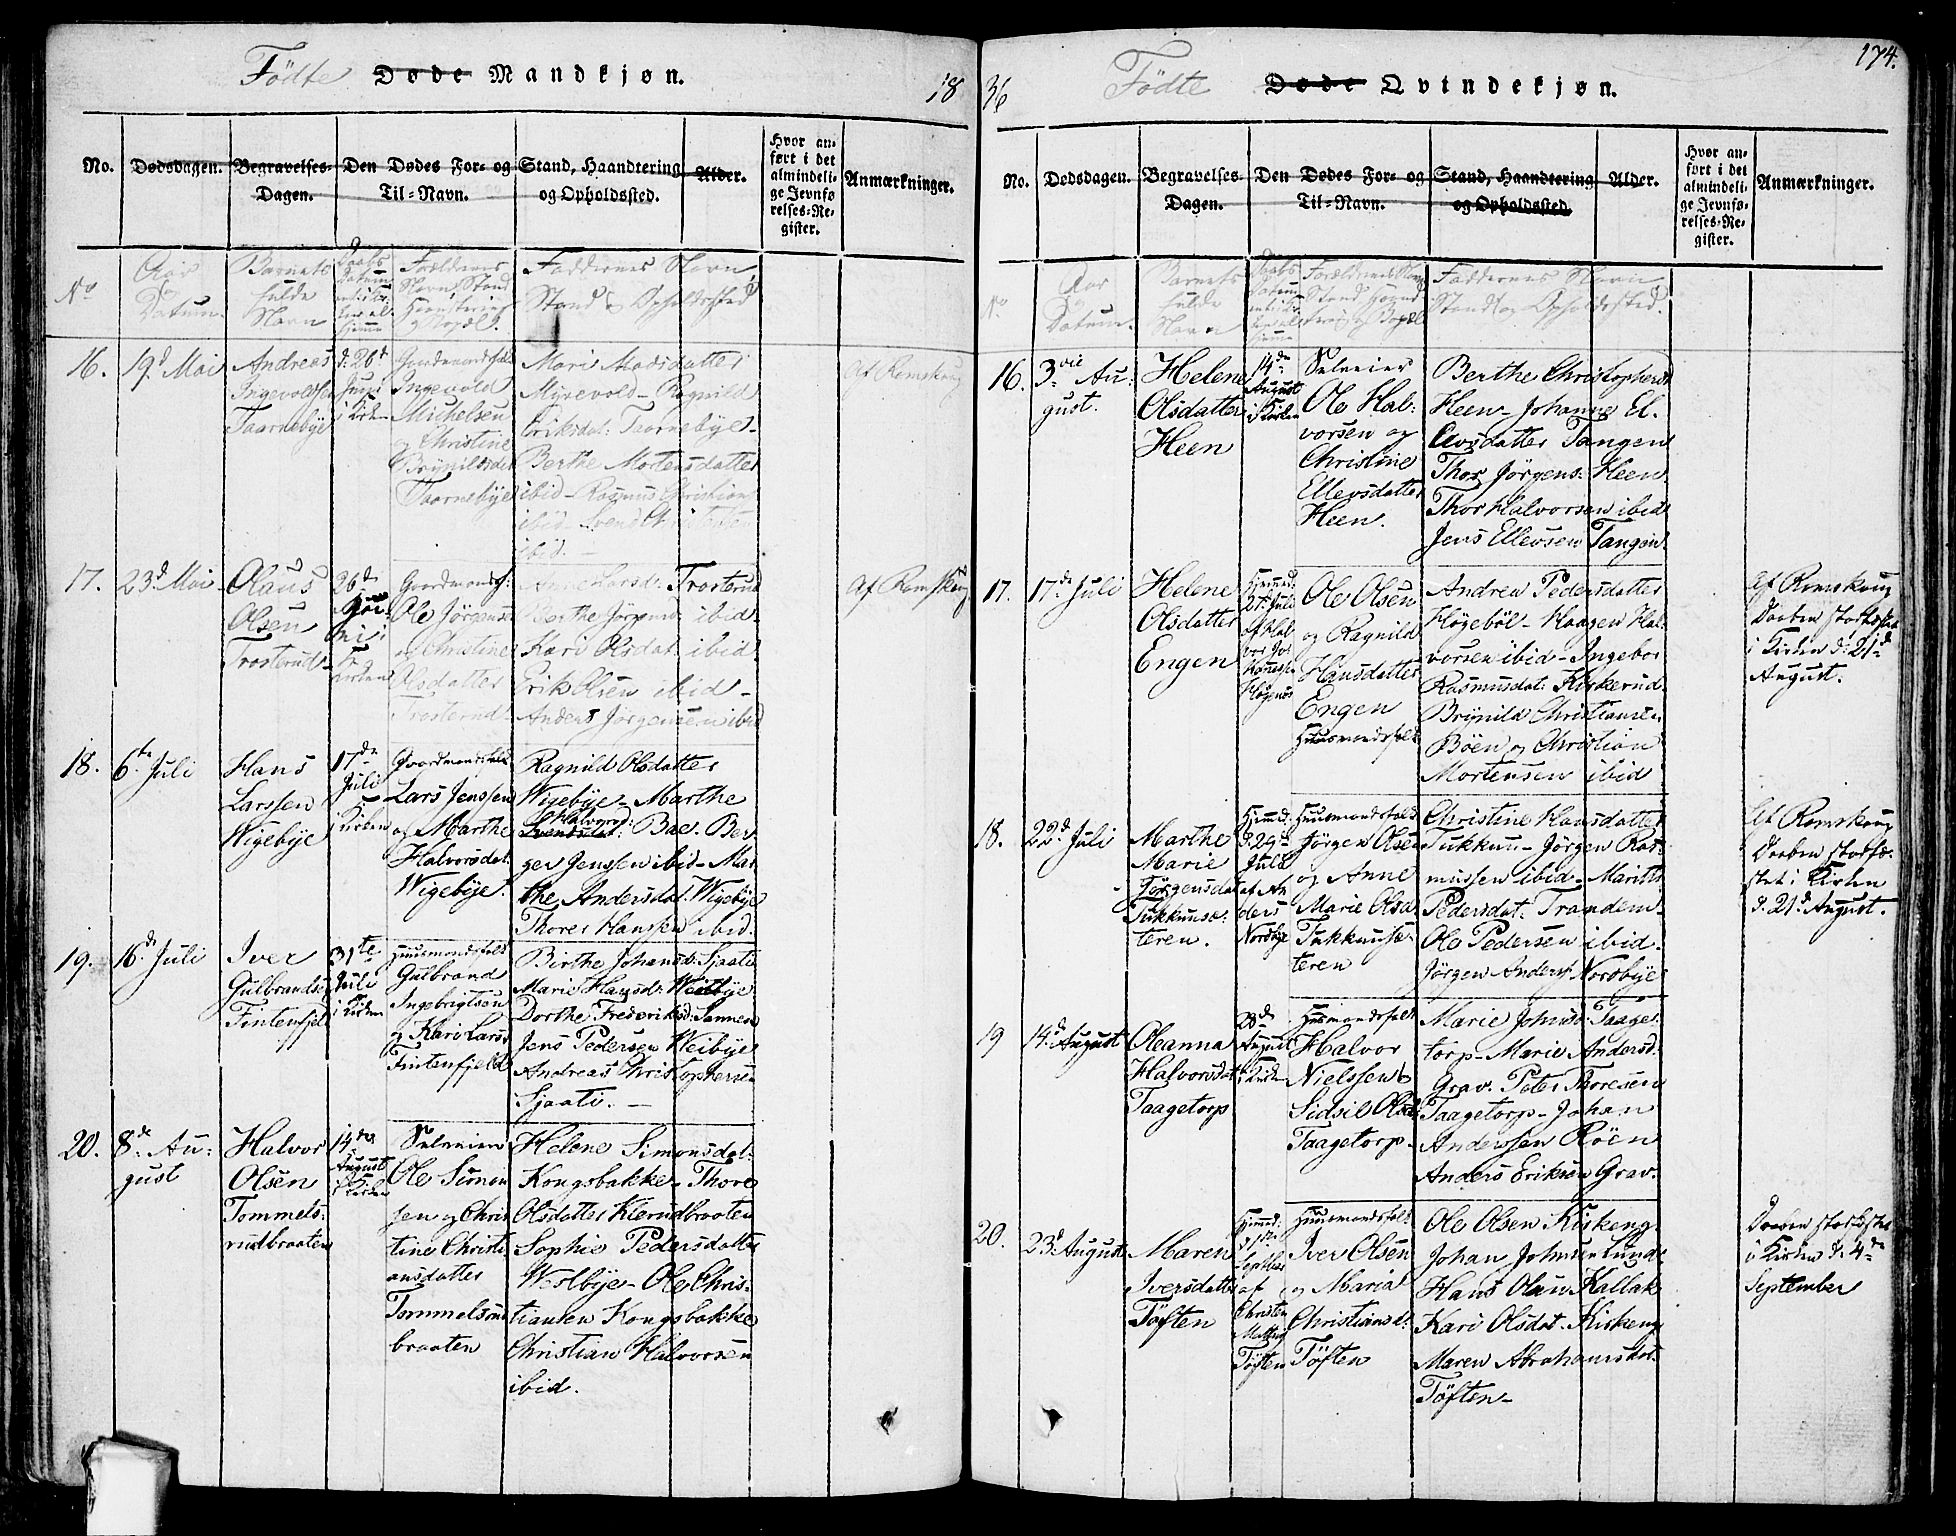 Födte Døde Mandkjøn.
18
No.
Dødsdagen.
Begravelses-
Dagen.
Den Dødes For- og
Til-Navn.
Stand, Haandtering
og Opholdssted.
Alder.
Hvor an-
ført i det
almindeli-
ge Jevnfø-
relses-Re-
gister.
Anmærkninger.
No
Aar
og
Datum.
Barnets
fulde
Navn
Daabs
Datum
Forældrenes
Navn, Stand
Haandtering
og Bopæl.
Faddernes Navn,
Stand & Opholdssted
16.
19d Mai
Andreas
Ingevoldsen
Taarnebye
d: 26d
Juni
i Kirken
Gaardmandsfolk
Ingevold
Michelsen
og Christine
Brynildsdr
Taarnebye
Mari Madsdatter
Myrevold - Ragnild
Eriksdat: Taarnebye -
Berthe Mortensdatter
ibid - Rasmus Christians
ibid - Svend Christensen
ibid. -
Af Romskoug
17.
23d Mai
Olaus
Olsen
Trosterud -
26de
Juni
Kirken
Gaardmandsf:
Ole Jörgensen
og Christine
Olsdatter
Trosterud -
Anne Larsd: Trosterud
Berthe Jörgensd ibid -
Kari Olsdat: ibid
Erik Olsen ibid -
Anders Jörgensen ibid
Af Romskoug
18.
6te Juli
Hans
Larssen
Wigebye
17de
Juli
i Kirken
Gaardmandsfolk
Lars Jenssen
og Marthe
Halvorsdat.
Wigebye.
Ragnild Olsdatter
Wigebye - Marthe
Halvorsd:
Svendsdat: Bae. Ber-
ger Jenssen ibid - Mar-
the Andersdat: Wigebye
Thorer Hanssen ibid.
19.
16d Juli
Iver
Gulbrandsen
Fintenfjeld
31te
Juli
i Kirken
Huusmandsfolk
Gulbrand
Ingebrigtsen
og Kari Larsd
Fintenfjeld
Birthe Johansd: Sjaati
Marie Hansd: Weibye
Dorthe Frederiksd: Sannen
Jens Pedersen Weibye
Andreas Christophersen
Sjaati. -
20.
8de Au-
gust
Halvor
Olsen
Tommels-
rudbraaten
14de
August
i Kirken
Selveier
Ole Simon
sen og Chris
tine Christi
ansdatter
Tommelsrud
braaten
Helene Simonsdat:
Kongsbakke - Thore
Olsdatter Kierudbraaten
Sophie Pedersdatter
Westbye - Ole Chris-
tiansen Kongsbakke
Christian Halvorsen
ibid.
36
174.
Födte Døde Qvindekjøn.
No.
Dødsdagen.
Begravelses-
Dagen.
Den Dødes For- og
Til-Navn.
Stand, Haandtering
og Opholdssted.
Alder.
Hvor an-
ført i det
almindeli-
ge Jevnfø-
relses-Re-
gister.
Anmærkninger.
No.
Aar
og
Datum.
Barnets
fulde
Navn
Daabs
Datum
Forældrenes Navn
Stand Haand
tering Bopæl
Faddernes Navn
Stand og Opholdssted.
16.
3die Au-
gust.
Helene
Olsdatter
Heen
14de
August
i Kirken
Selveier
Ole Hal-
vorsen og
Christine
Ellevsdatter
Heen.
Berthe Christophersd
Heen - Johanne El-
levsdatter Tangen
Thor Jörgens: Heen
Thor Halvorsen ibid
Jens Ellevsen Tangen
17.
17de Juli
Helene
Olsdatter
Engen
Hjemmed:
27d Juli
af Hal
vor Jo
Ole Olsen
og Ragnild
Hansdatter
Engen
Huusmandsfolk
Andrea Pedersdatter
Högeböl - Haagen Hal-
vorsen ibid - Ingebor
Rasmusdat: Kirkerud
Brynild Christiansen
Böen og Christian
Mortensen ibid
Af Romskoug
Daaben stadfæstet
i Kirken d: 21d
August.
18.
22d Juli
Marthe
Marie
Jörgensdat
Tukkunsæ-
teren.
Hjemmed:
d: 29de
Juli
af An
ders
Nordbye
Huusmandsfolk
Jörgen Olsen
og Anne
Marie Olsd
Tukkunsæ-
teren
Christine Hansdatter
Tukkuu - Jörgen Ras-
mussen ibid - Marith
Pedersdat: Trandem -
Ole Pedersen ibid -
Jörgen Anders: Nordbye
Af Romskoug
Daaben stadfæ-
stet i Kirken
d. 21d August.
19
14d August
Oleanna
Halvorsdat
Taagetorp
28de
August
i Kirken
Huusmandsfolk
Halvor
Nielssen &
Sidsil Olsd
Taagetorp -
Marie Johnsd Taage-
torp - Marie Andersd:
Grav. Peter Thoresen
Taagetorp - Johan
Anderssen Röen
Anders Eriksen Grav.
20.
23d August
Maren
Iversdatter
Töften
Hjemmed:
Septbr
af
Christen
Töften
Huusmandsfolk
Iver Olsen
og Maria
Christiansd:
Töften
Ole Olsen Kirkeng
Johan Johnsen Lund
Hans Olsen Kallak
Kari Olsdat. Kirkeng
Maren Abrahamsdat.
Töften -
Daaben stadfæstet
i Kirken d: 4de
September